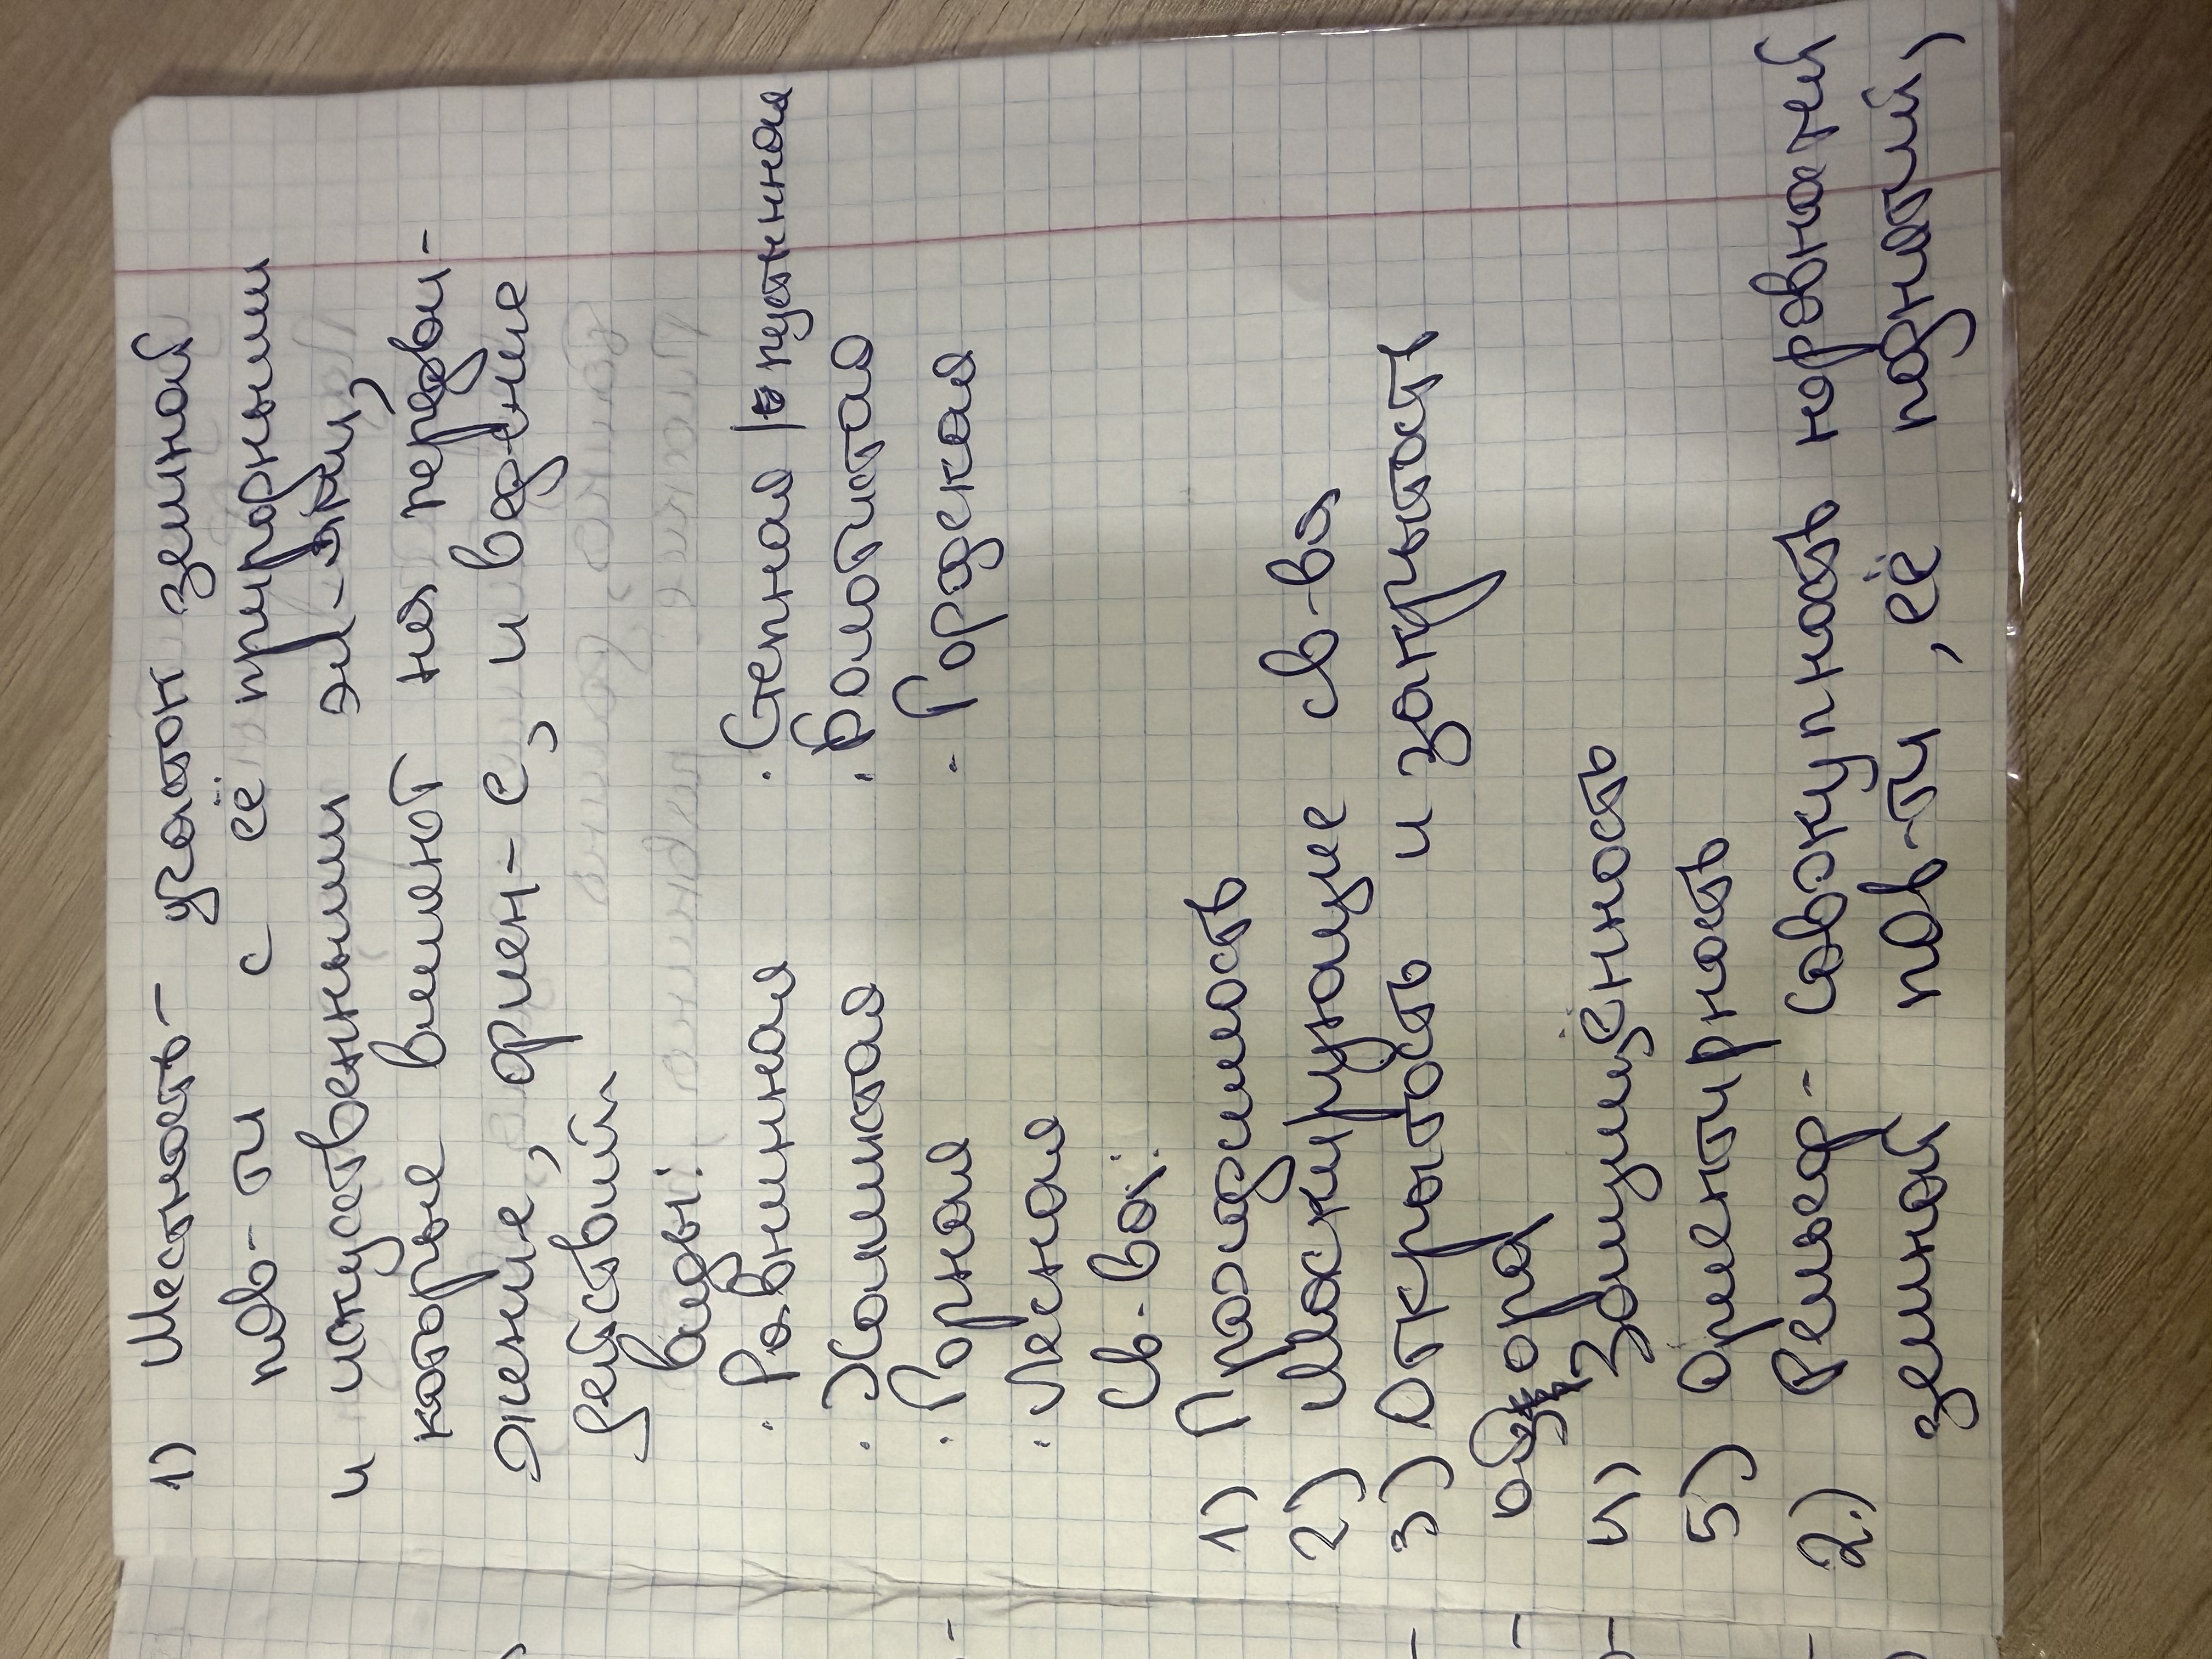 1) Местность- участок земной
пов-ти с её природными
и искусственными эл-тами,
которые влияют на передви-
жение, ориен-е, и ведение
действий.
Виды:
· Равнинная · Степная / пустынная
· Холмистая · Болотистая
· Горная · Городская
· Лесная
Св-ва:
1) Проходимость
2) Маскирующие св-ва
3) Открытость и закрытость
обзора
4) Защищённость
5) Ориентирность
2.) Рельеф- совокупность неровностей
земной пов-ти, её поднятий,